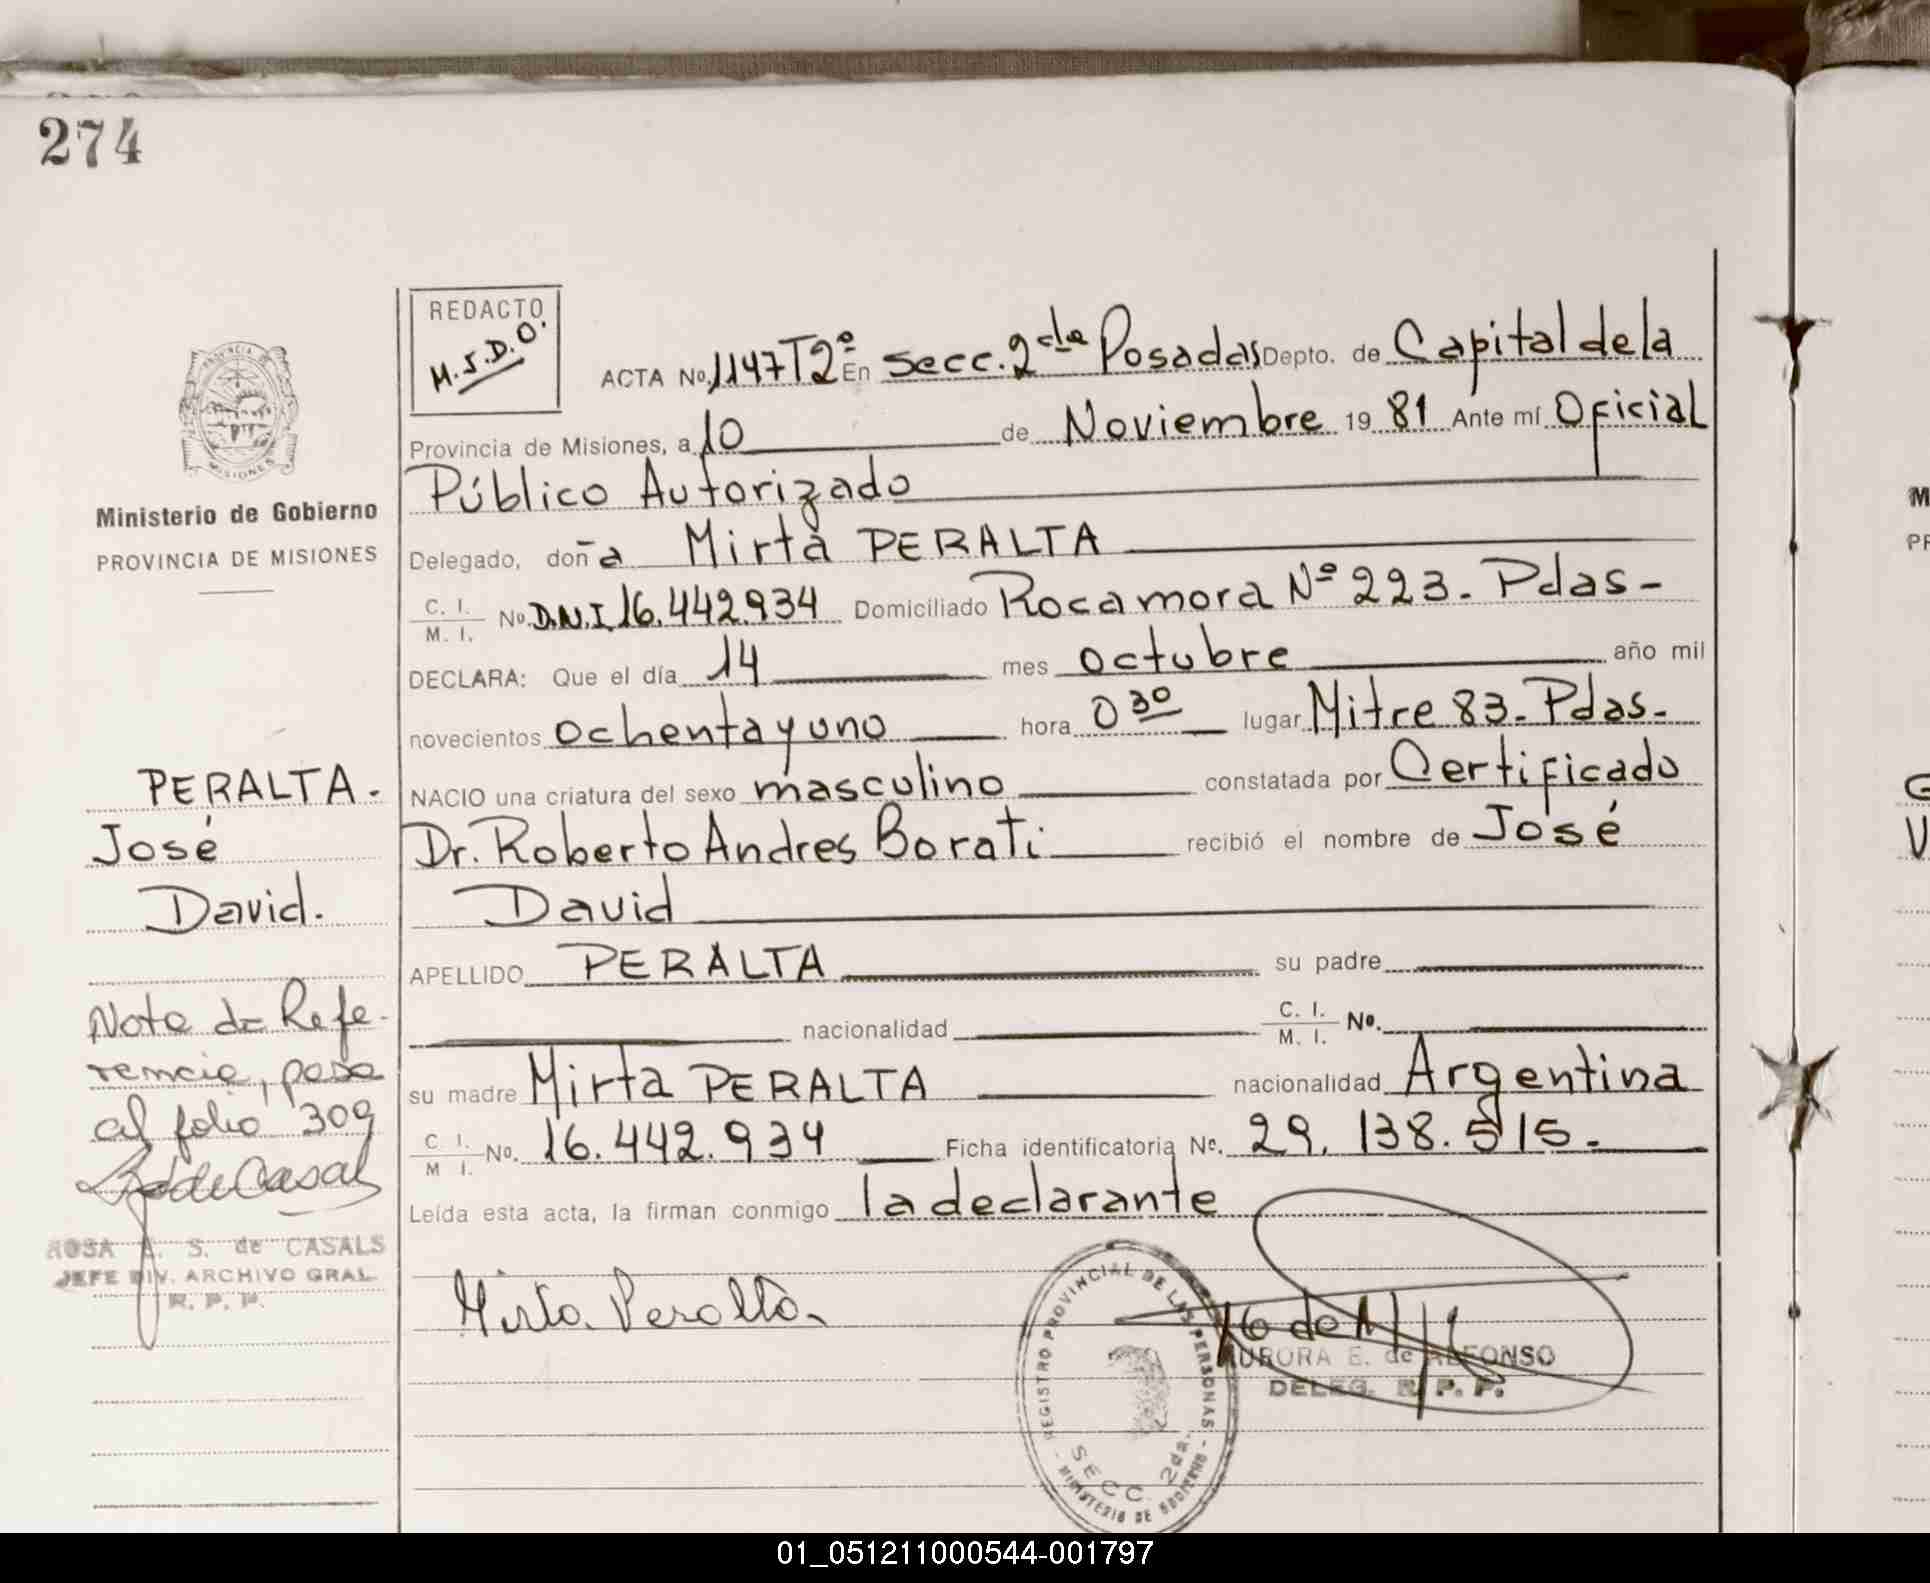 274
REDACTO
M.S.D.O.
ACTA No. 1147 T2º En secc. 2da Posadas Depto. de Capital de la
Provincia de Misiones, a 10 de Noviembre 19 81 Ante mí Oficial
Público Autorizado
Delegado, doña Mirta PERALTA
C. I. / M. I. No. D.N.I. 16.442.934 Domiciliado Rocamora Nº 223. Pdas-
DECLARA: Que el día 14 mes octubre año mil
novecientos ochenta y uno hora 0 30 lugar Mitre 83- Pdas-
NACIO una criatura del sexo masculino constatada por Certificado
Dr. Roberto Andres Borati recibió el nombre de José
David
APELLIDO PERALTA su padre
nacionalidad C. I. / M. I. No.
su madre Mirta PERALTA nacionalidad Argentina
C I. / M I. No. 16.442.934 Ficha identificatoria No. 29.138.515.-
Leída esta acta, la firman conmigo la declarante
Mirta Peralta
REGISTRO PROVINCIAL DE LAS PERSONAS
SECC. 2da.
- MINISTERIO DE GOBIERNO -
AURORA E. de ALFONSO
DELEG. R. P. P.
PROVINCIA DE
MISIONES
Ministerio de Gobierno
PROVINCIA DE MISIONES
PERALTA.
José
David.
Nota de Refe-
rencia, pasa
al folio 309
ROSA S. de CASALS
JEFE DIV. ARCHIVO GRAL.
R. P. P.
M
PR
G
V
01_051211000544-001797